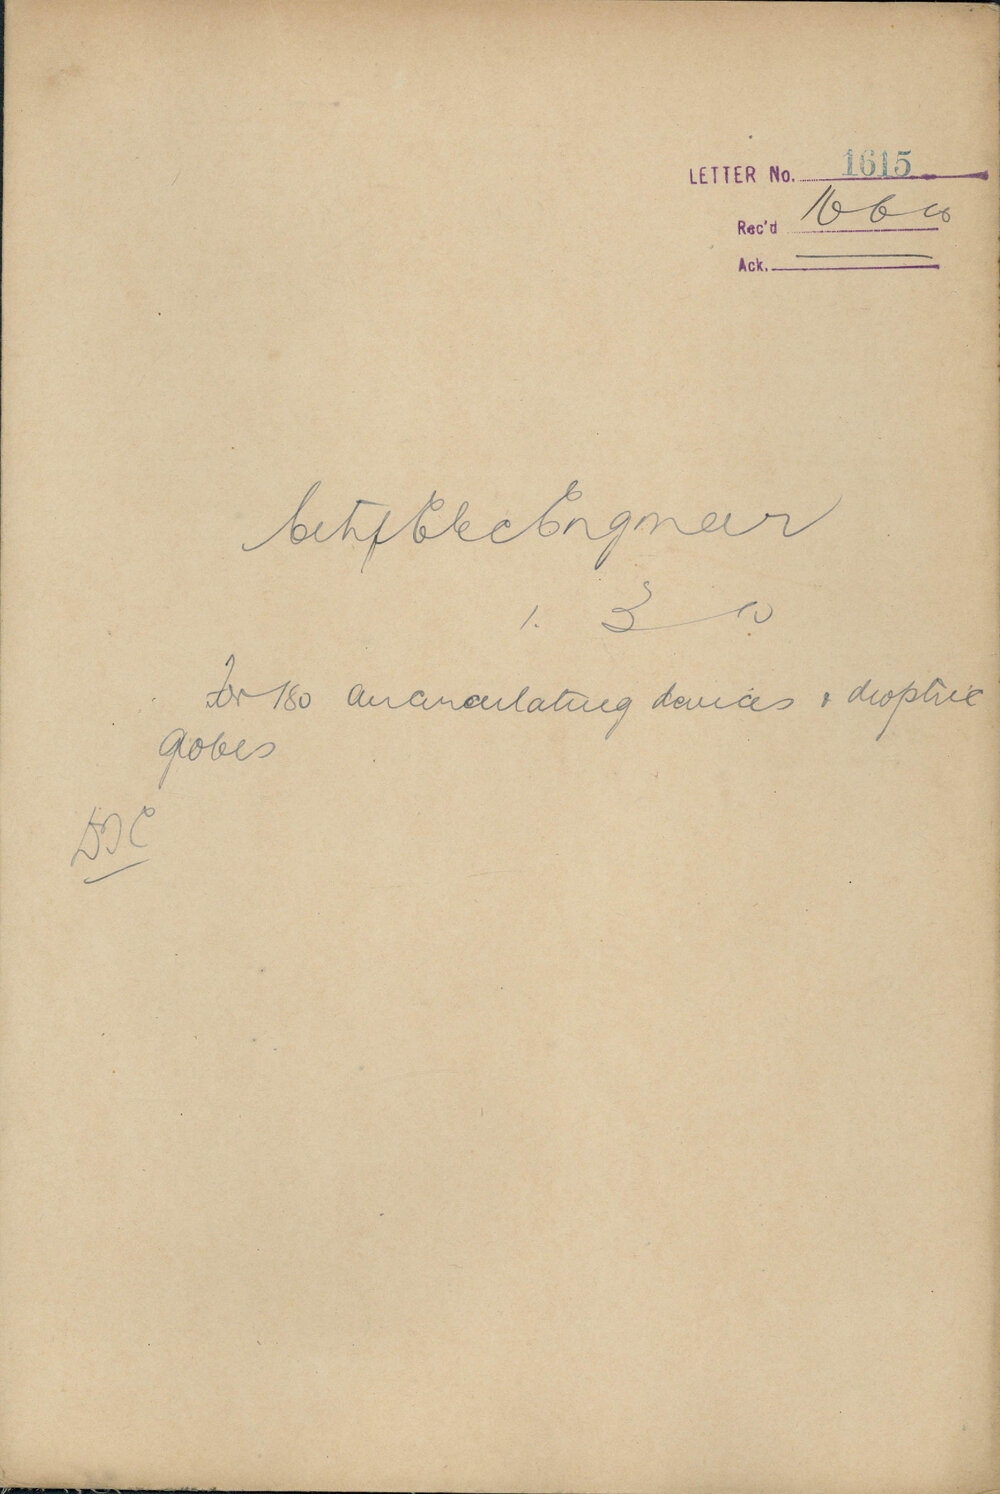 LETTER No. 1615
Rec'd 16 6 10
Ack.
City Elec Engineer
1. 3 10
For 180 air circulating devices & dioptric
globes